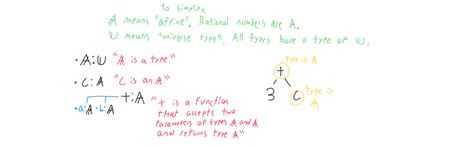 to simplify,
A means "affine". Rational numbers are A.
U means "universe type". All types have a type of U.
• A:U "A is a type."
• C:A "C is an A."
• a:A · b:A + : A
"+ is a function
that accepts two
parameters of types A and A
and returns type A"
type is A
+
3 C
type is
A